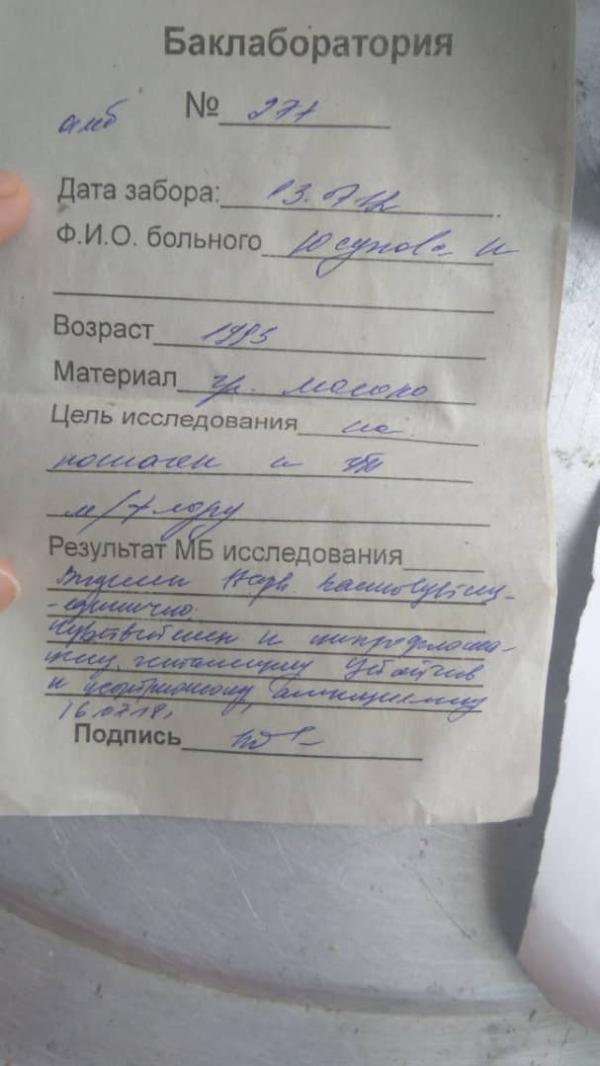 Баклаборатория
амб № 271
Дата забора: 13.07.18
Ф.И.О. больного Юсупова Н
Возраст 1995
Материал гр. молоко
Цель исследования на
патоген и УП
м/флору
Результат МБ исследования
Выделен Staph. haemolyticus
- единично.
Чувствителен к ципрофлокса-
цину, гентамицину Устойчив
к цефтриаксону, ампициллину
16.07.18,
Подпись